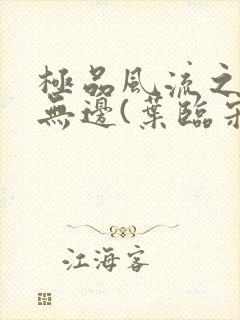 極品風流之
無邊(葉臨
江海客